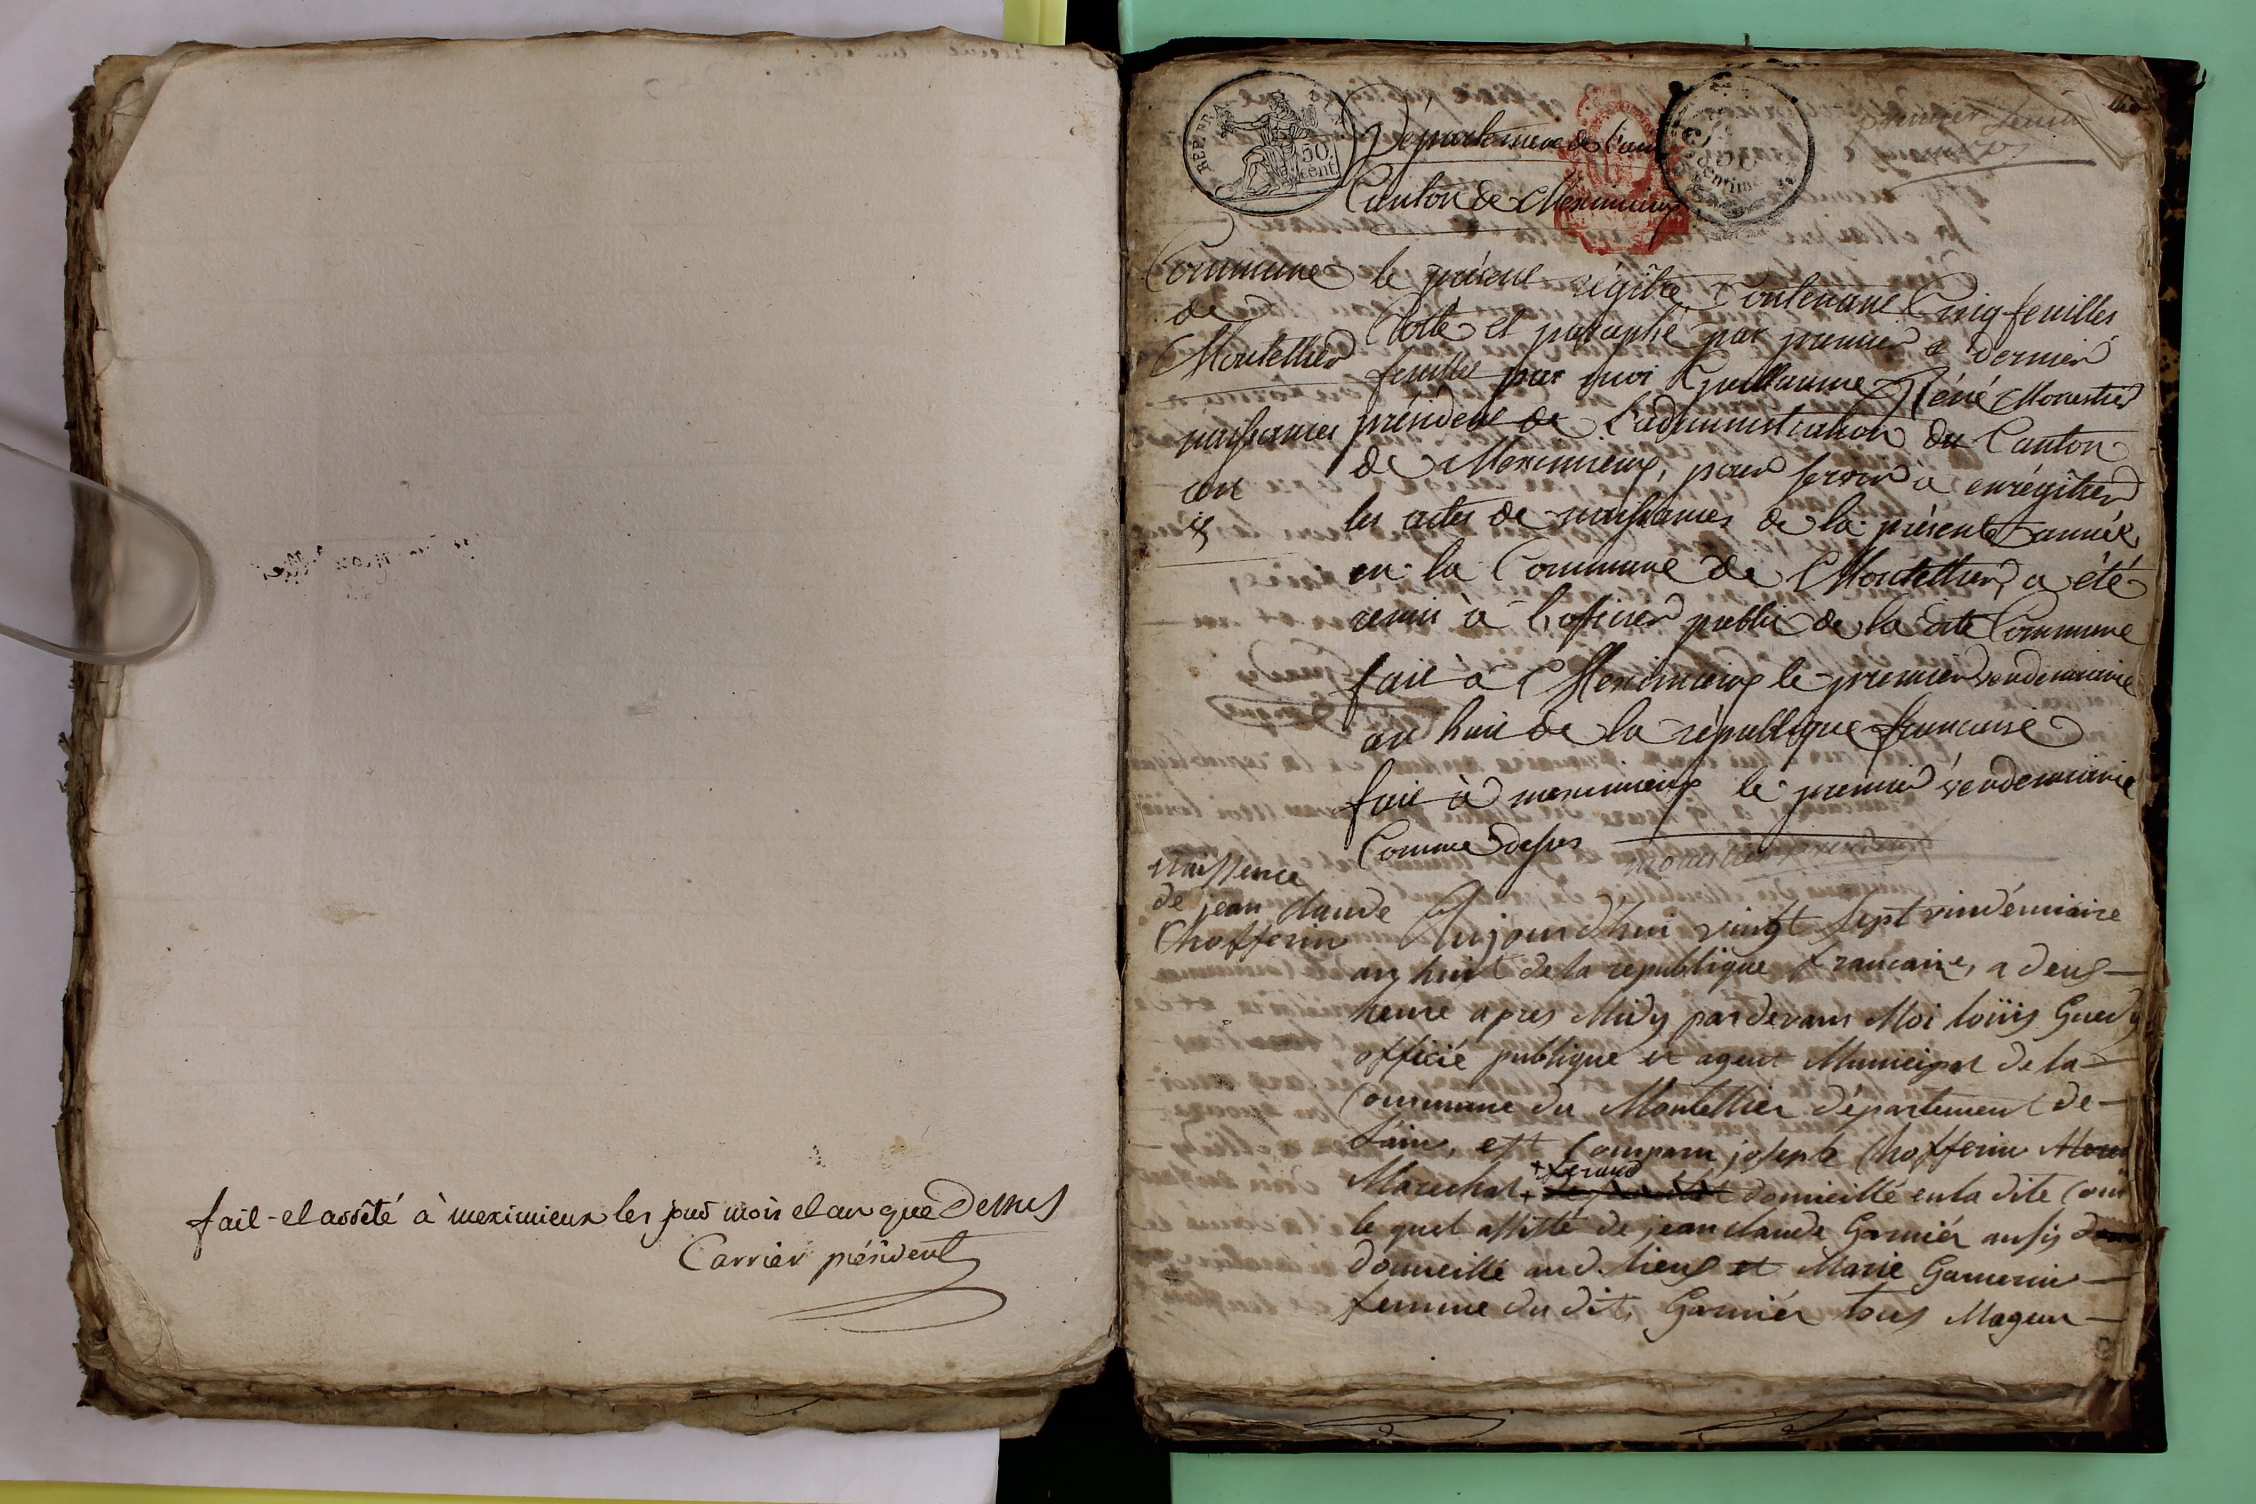 fait et arrêté à meximieux les jour mois et an que dessus
Carrier président
RÉP. FRA.
50
cent.
Département de l'ain
Canton de Meximieux
premier feuillet
Commune
de
Montellier
naissances
an
8
le présent régître Contenant Cinq feuilles
Cotté et paraphé par premier a dernier
feuillet par moi Guillaume Réné Monestier
président de L'administration du Canton
de Meximieux, pour servir à enrégîtrer
les actes de naissances de la présente année
en la Commune de Montellier, a été
remis à L'officier public de la dite Commune
fait à Meximieux le premier vendemiaire
an huit de la république francaise
fait à meximieux le premier vendemiaire
Comme dessus
Monestier président
Naissence
de jean claude
Chofferin
Aujourd'hui vingt sept vindémiaire
an huit de la republique francaise, a deux
heure apres Midy pardevant Moi loüis Guedy
officié publique et agent Municipal de la
Commune du Montellier département de
Lain, est Comparu joseph Chofferin
Marechal + domicillé en la dite Com
+ ferand
le quel assisté de jean claude Garniér aussy
domicillé aud. lieux et Marie Gamerin
femme du dit Garniér tous Mageur